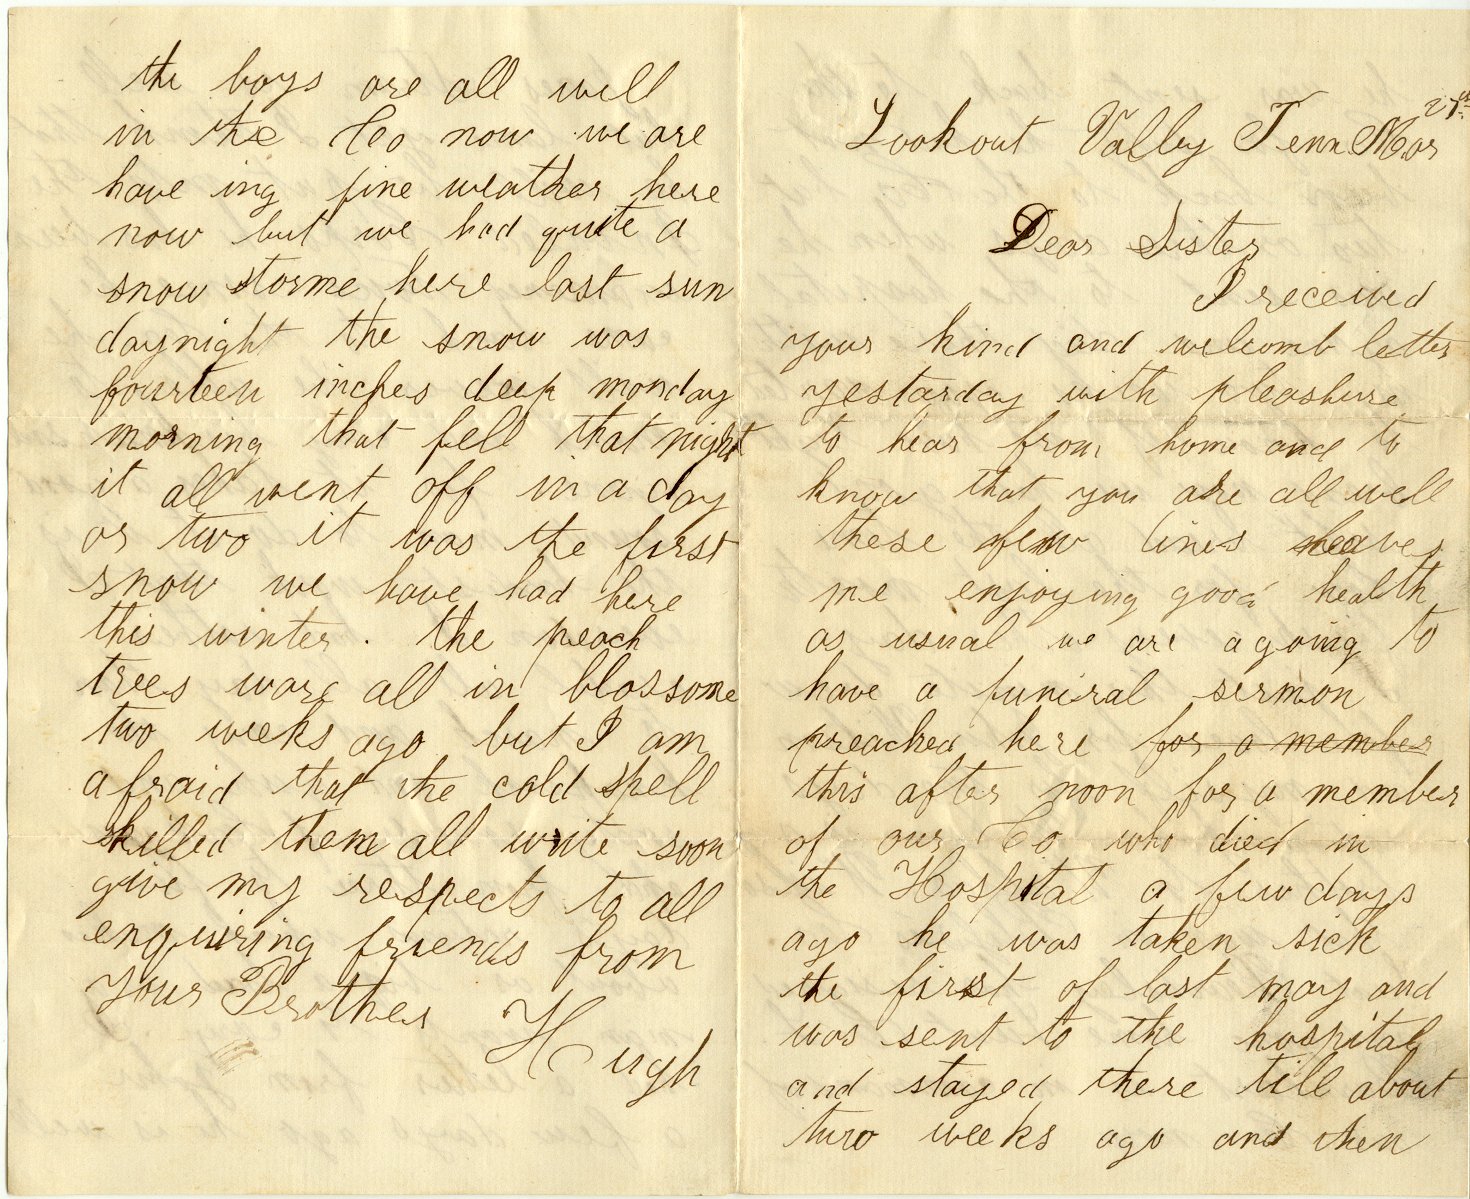 Lookout Vally Tenn Mar 27th
Dear Sister
I received
your kind and welcomb letter
yestarday with pleashure
to hear from home and to
know that you are all well
these few lines leaves
me enjoying good health
as usual we are agoing to
have a funiral sermon
preached here for a member
this after noon for a member
of our Co who died in
the Hospital a few days
ago he was taken sick
the first of last may and
was sent to the hospital
and stayed there till about
two weeks ago and then
the boys are all well
in the Co now we are
have ing fine weather here
now but we had quite a
snow storme here last sun
daynight the snow was
fourteen inches deep monday
morning that fell that night
it all went off in a day
or two it was the first
snow we have had here
this winter. the peach
trees ware all in blossome
two weeks ago but I am
afraid that the cold spell
killed them all write soon
give my respects to all
enquiring friends from
your Brother
Hugh